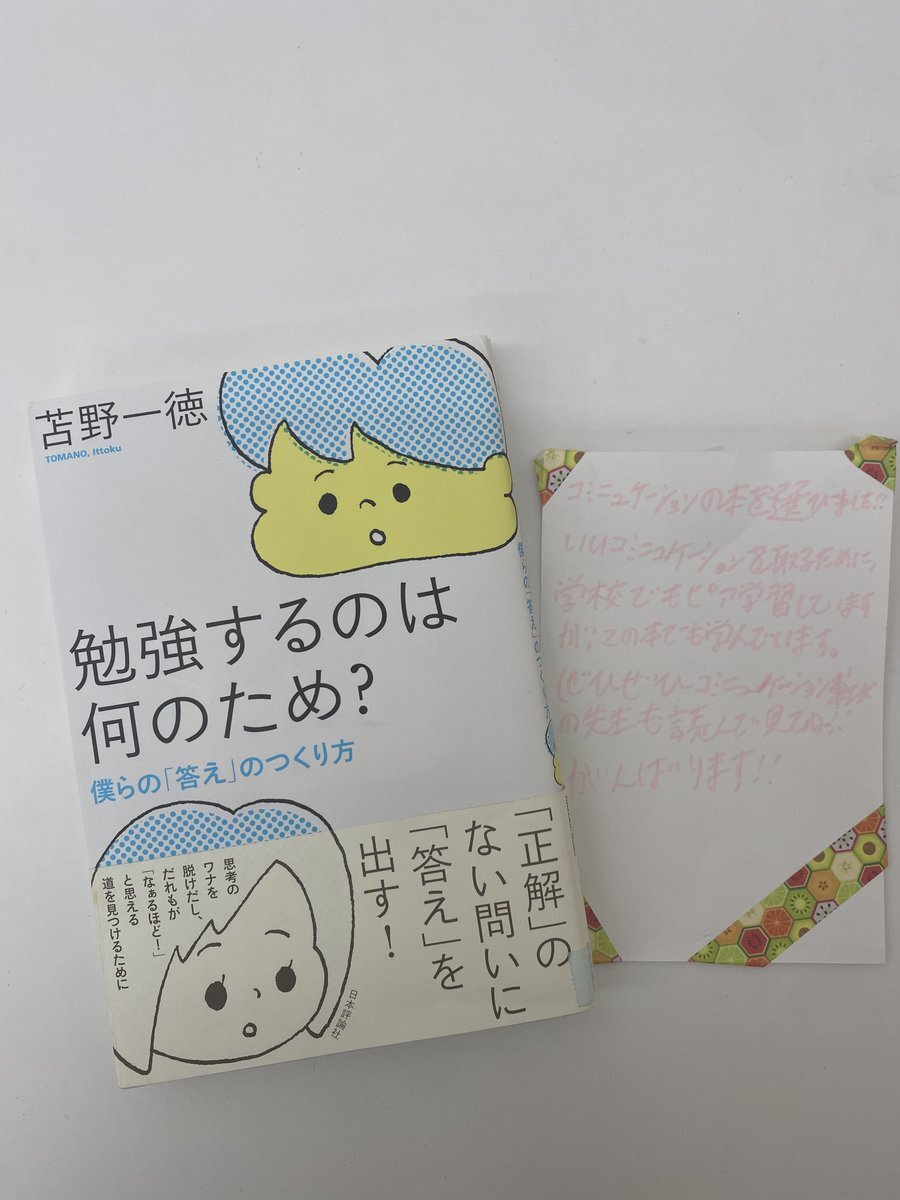 苫野一徳
TOMANO, Ittoku
勉強するのは
何のため?
僕らの「答え」のつくり方
「正解」の
ない問いに
「答え」を
出す!
思考の
ワナを
脱けだし、
だれもが
「なぁるほど!」
と思える
道を見つけるために
日本評論社
僕らの「答え」のつくり方
コミニュケーションの本を選びました!!
いいコミニュケーションを取るために、
学校でもピア学習しています
が、この本でも学んでいます。
ぜひぜひコミニュケーション
の先生も読んで見てね!!
がんばります!!